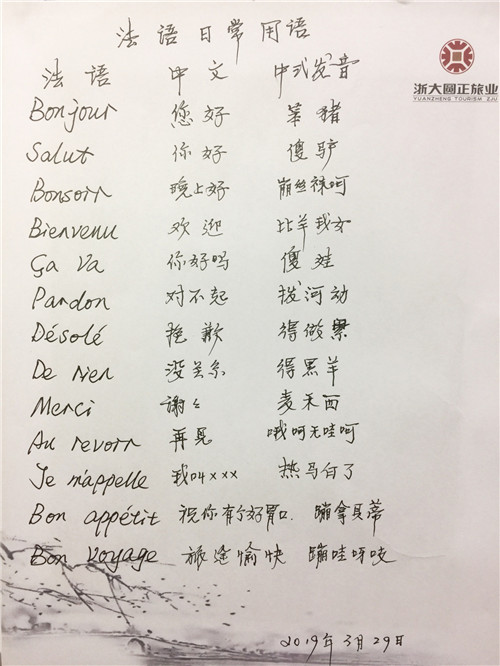 法语日常用语
浙大圆正旅业
YUANZHENG TOURISM ZJU
法语 中文 中式发音
Bonjour 您好 笨猪
Salut 你好 傻驴
Bonsoir 晚上好 崩丝袜呵
Bienvenu 欢迎 比羊我女
Ça Va 你好吗 傻娃
Pardon 对不起 拔河动
Désolé 抱歉 得做累
De rien 没关系 得黑羊
Merci 谢谢 麦禾西
Au revoir 再见 哦呵无哇呵
Je m'appelle 我叫××× 热马白了
Bon appétit 祝你有个好胃口. 蹦拿贝蒂
Bon Voyage 旅途愉快 蹦哇呀吱
2019年3月29日